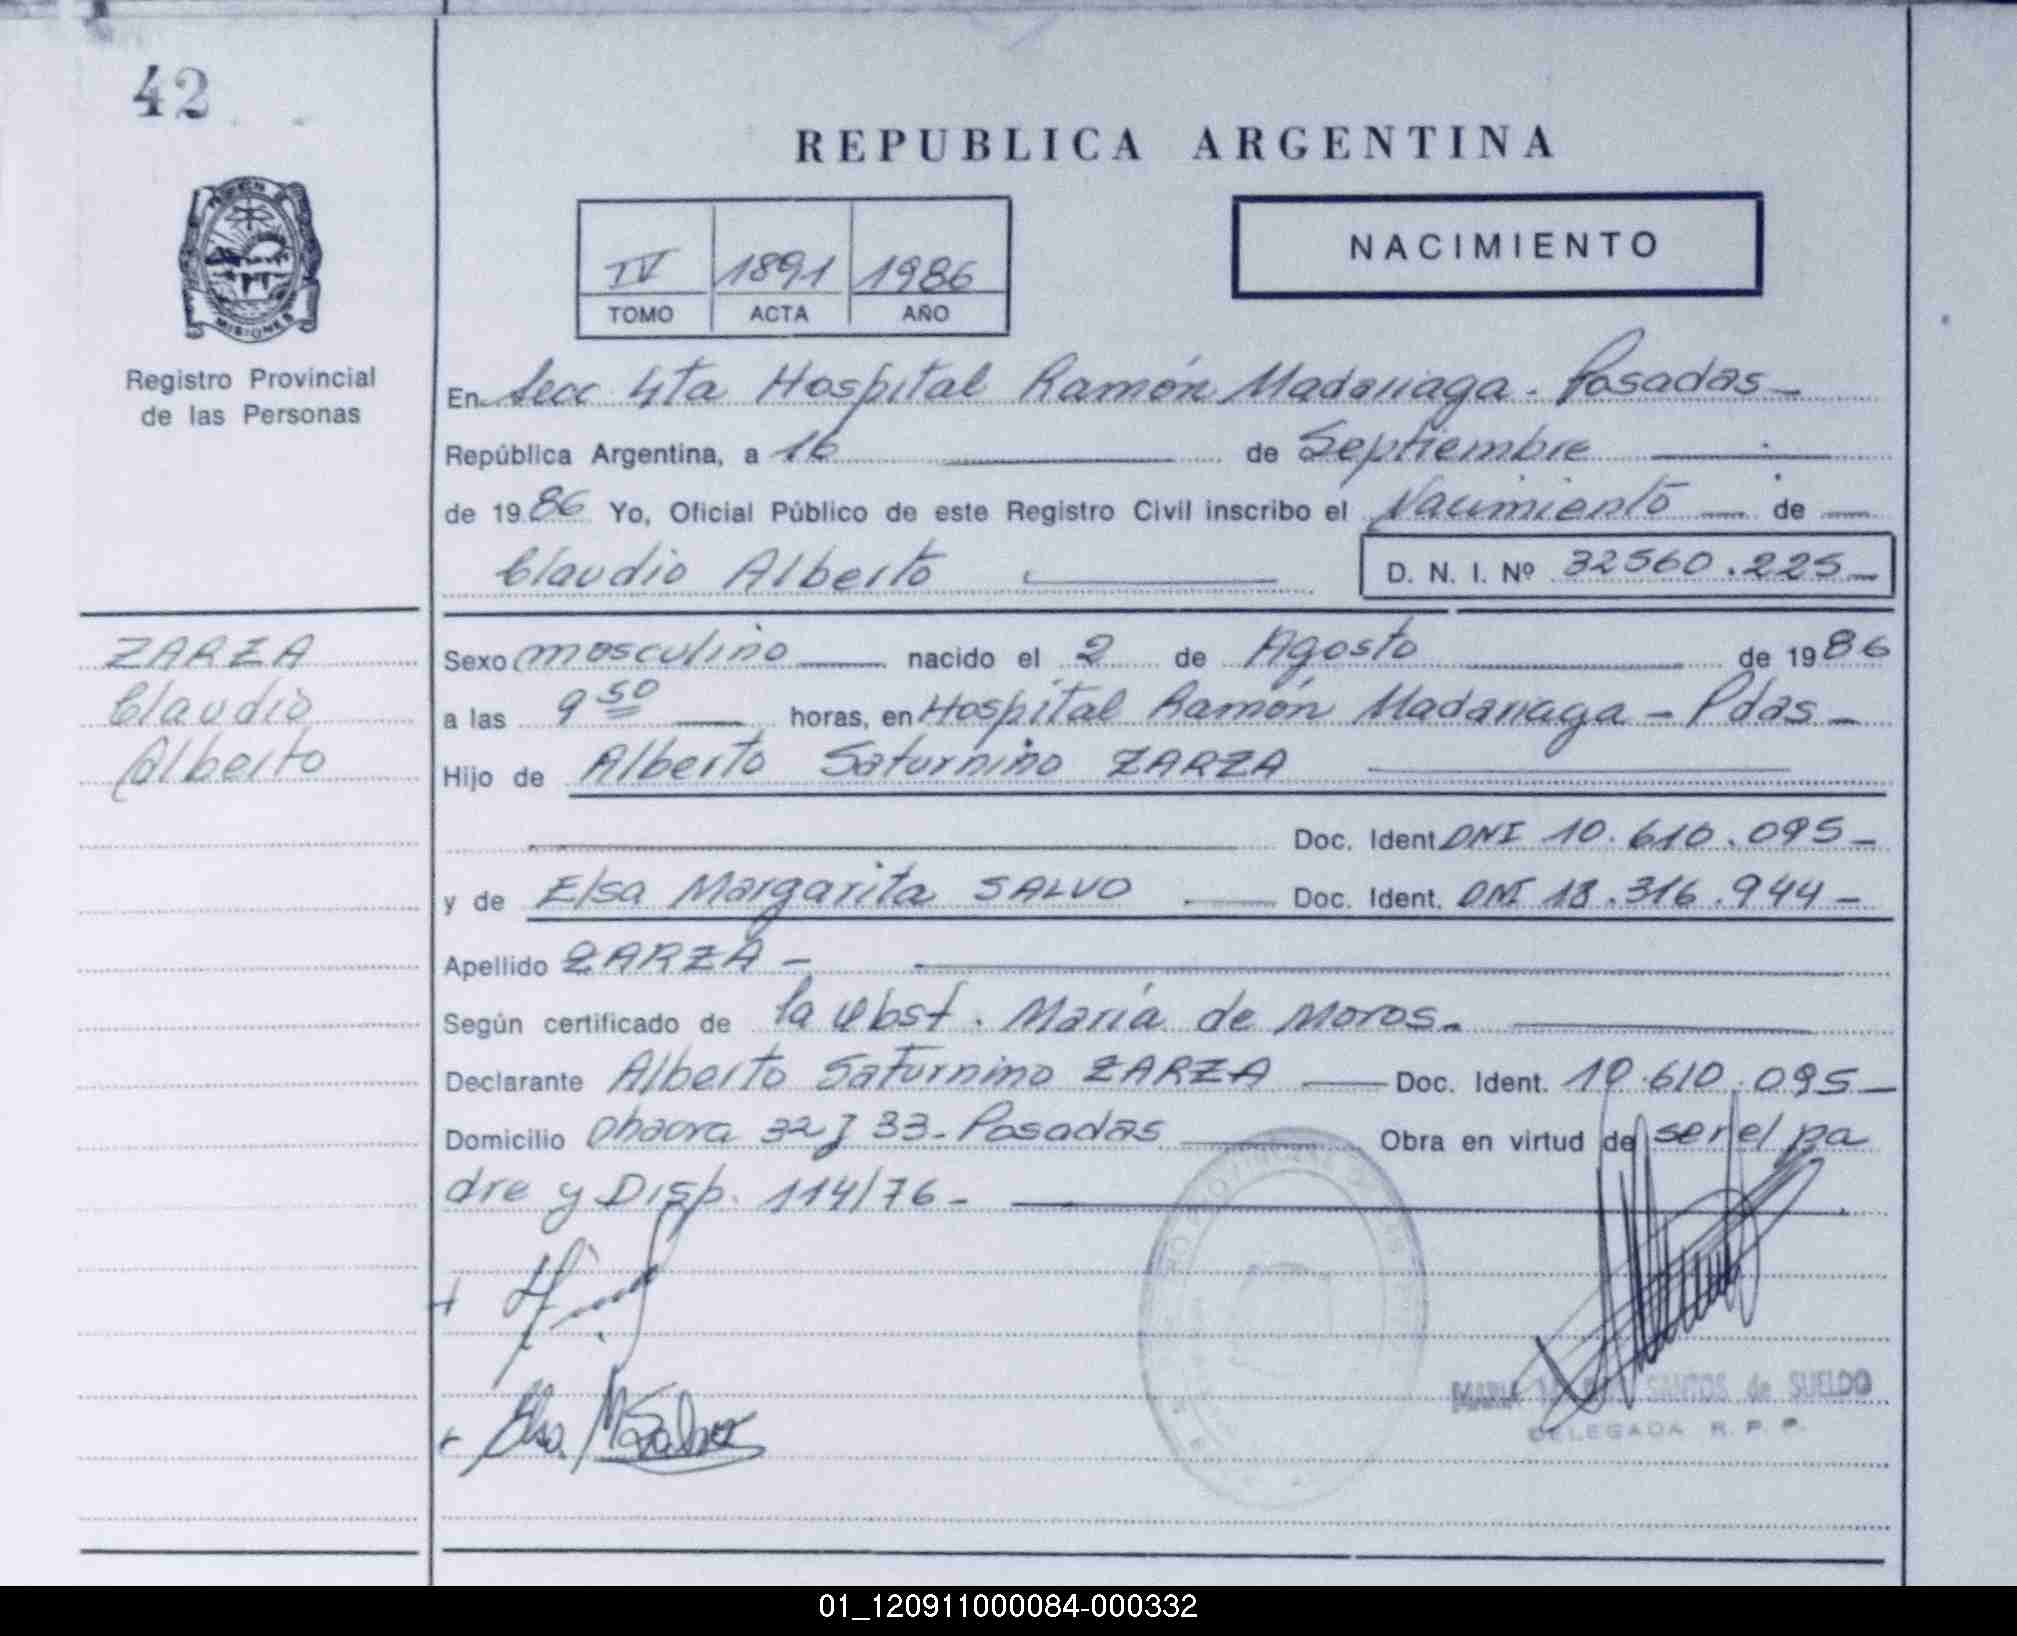 42
REPUBLICA ARGENTINA
IV 1891 1986
TOMO ACTA AÑO
NACIMIENTO
MISIONES
Registro Provincial
de las Personas
En Secc 4ta Hospital Ramón Madariaga - Posadas -
República Argentina, a 16 de Septiembre
de 1986 Yo, Oficial Público de este Registro Civil inscribo el Nacimiento de
Claudio Alberto D. N. I. Nº 32560.225
ZARZA
Claudio
Alberto
Sexo masculino nacido el 2 de Agosto de 1986
a las 9 50 horas, en Hospital Ramón Madariaga - Pdas -
Hijo de Alberto Saturnino ZARZA
Doc. Ident. DNI 10.610.095 -
y de Elsa Margarita SALVO Doc. Ident. DNI 18.316.944 -
Apellido ZARZA -
Según certificado de la Obst. María de Moros.
Declarante Alberto Saturnino ZARZA Doc. Ident. 10.610.095 -
Domicilio Chacra 32 y 33 - Posadas Obra en virtud de ser el pa
dre y Disp. 114/76 -
Elsa M Salvo
MARIA SANTOS de SUELDO
DELEGADA R. P. P.
01_120911000084-000332